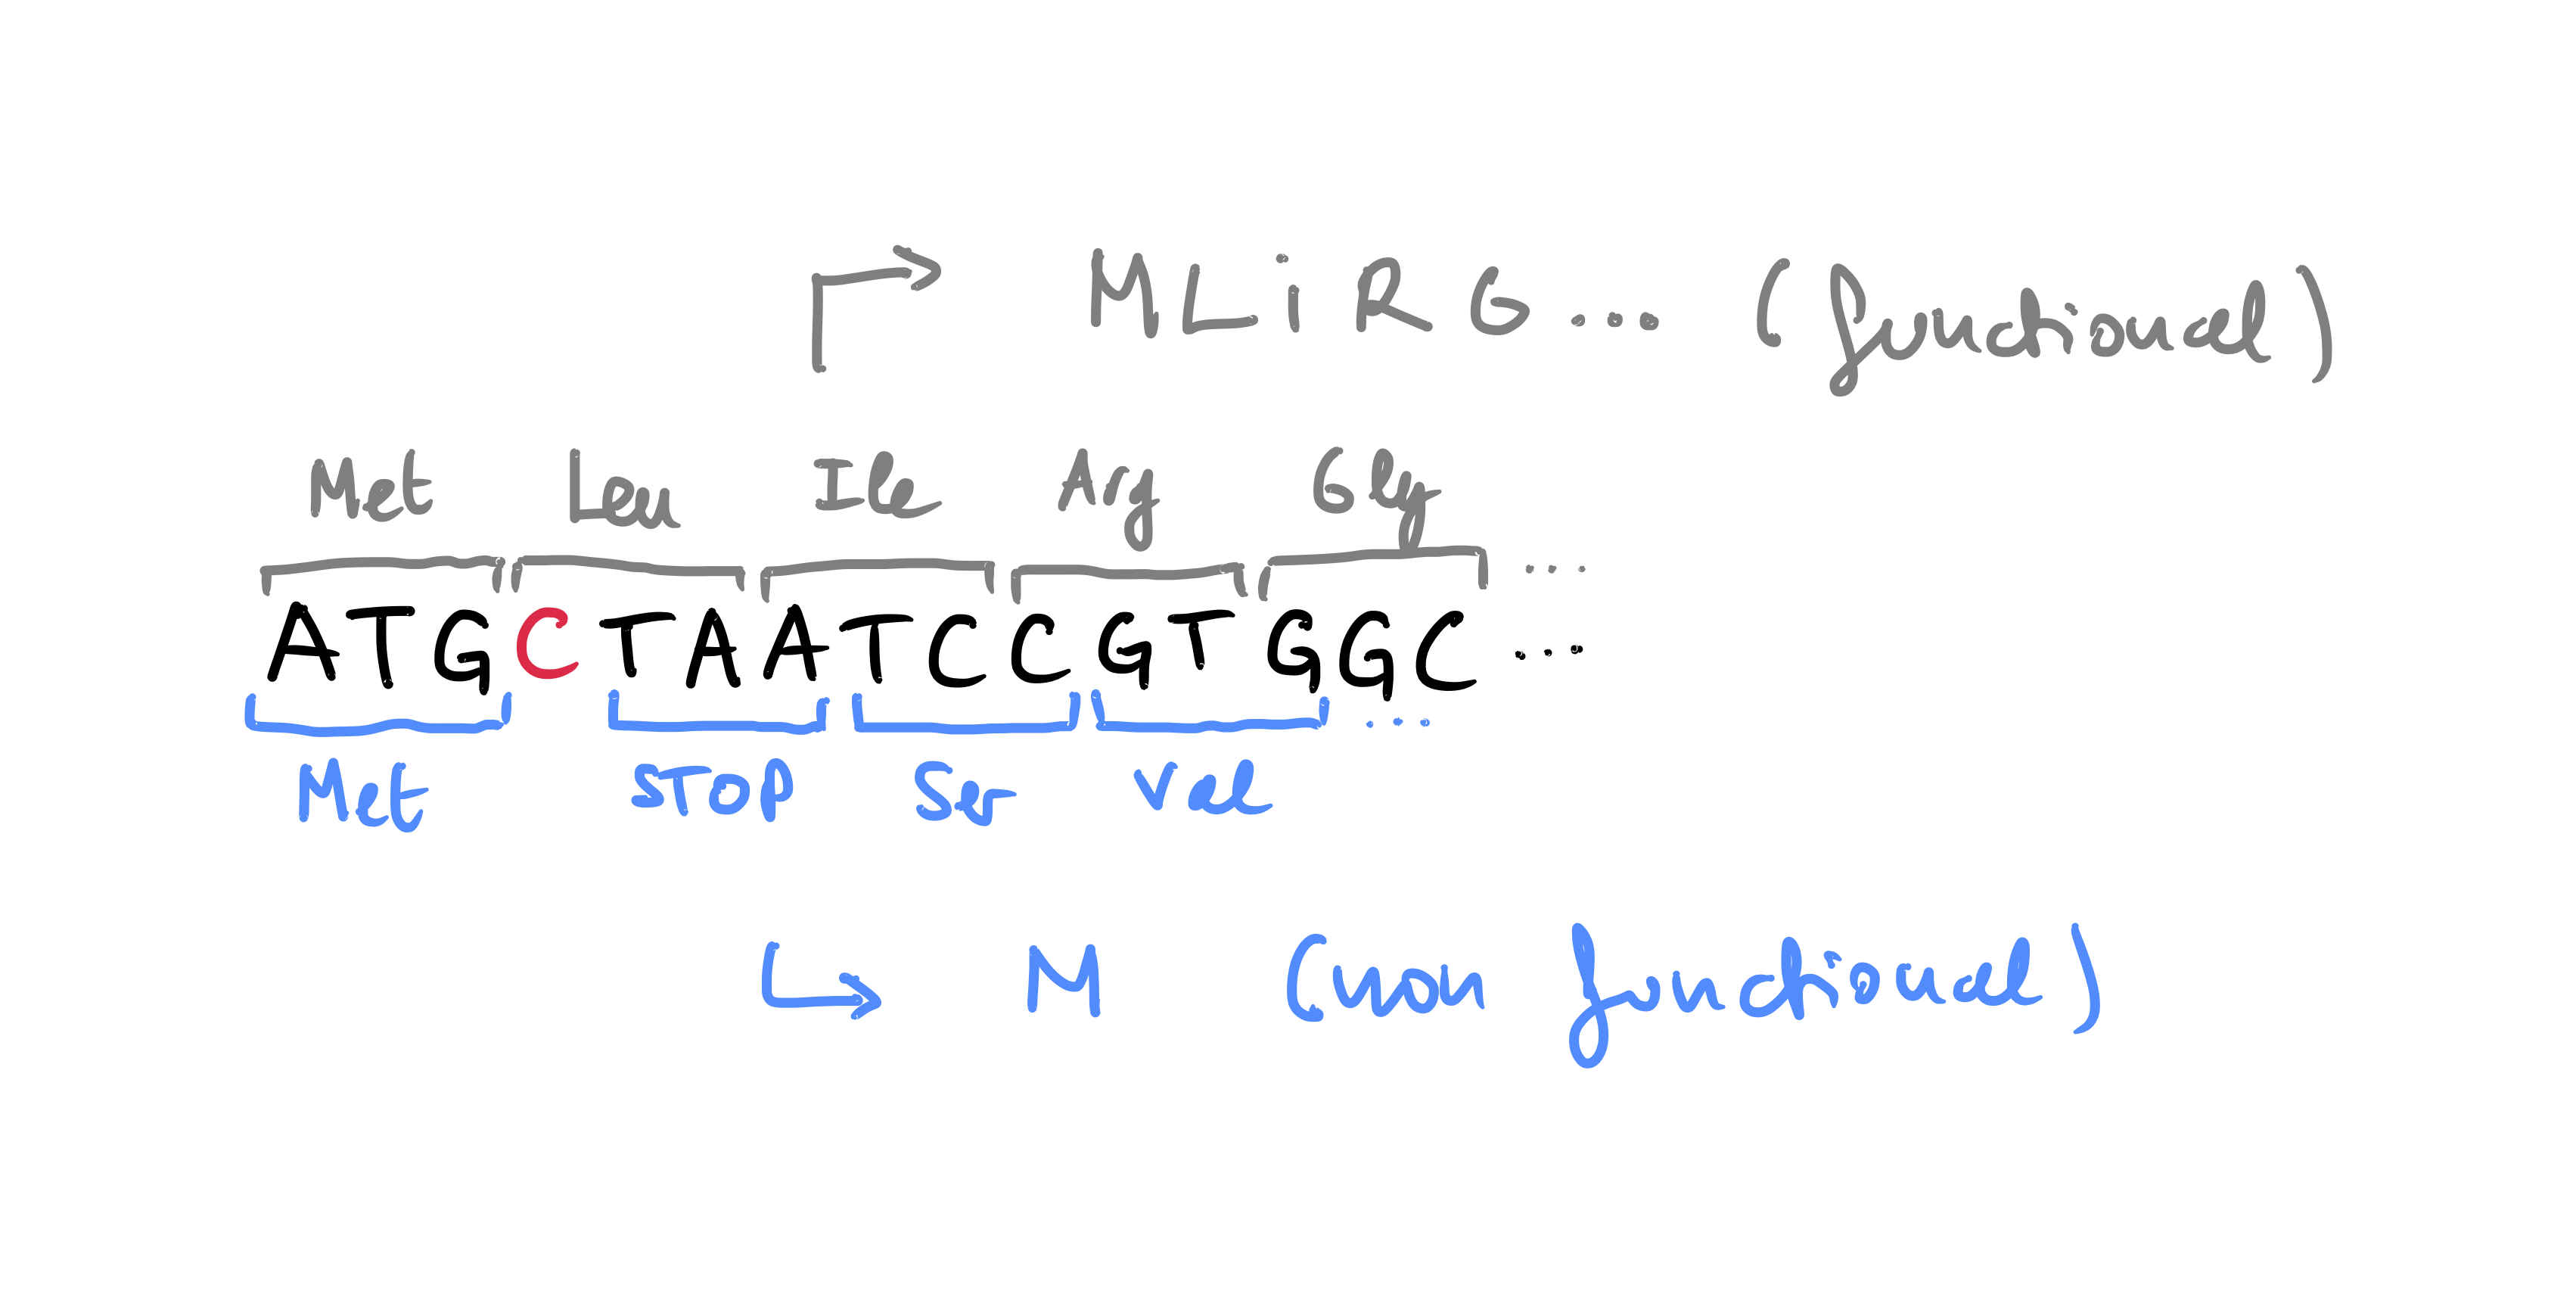 MLiRG... (functional)
Met Leu Ile Arg Gly ...
ATGCTAATCCGTGGC...
Met STOP Ser Val ...
M (non functional)